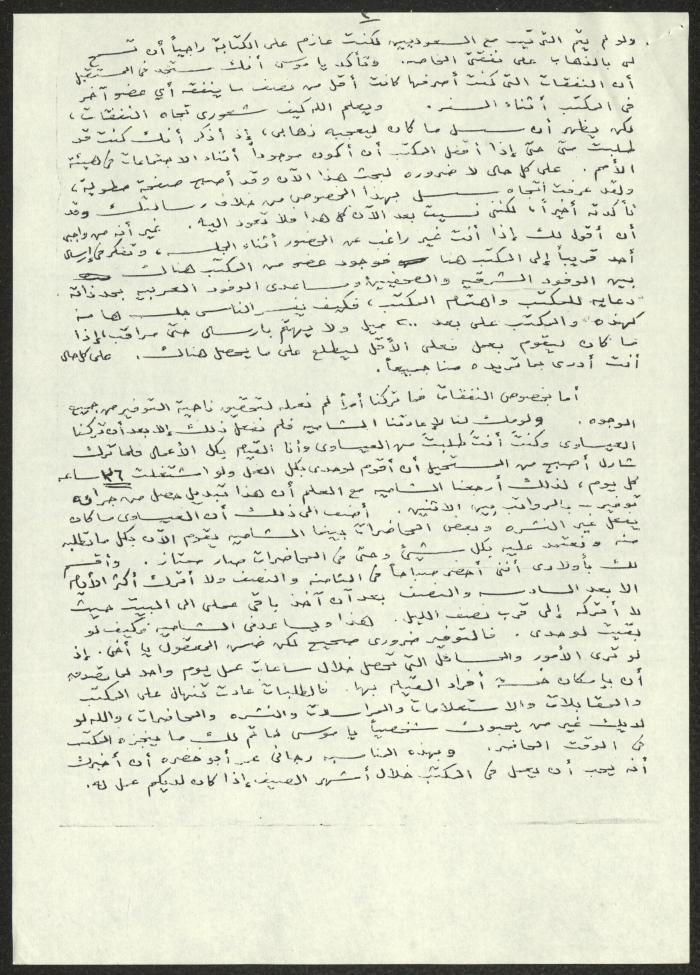 ٢
ولو لم يتم الترتيب مع السعوديين لكنت عازم على الكتابة راجياً أن تسمح
لي بالذهاب على نفقتي الخاصة. وتأكد يا موسى أنك ستجد في المستقبل
أن النفقات التي كنت أصرفها كانت أقل من نصف ما ينفقه أي عضو آخر
في المكتب أثناء السفر. ويعلم الله كيف شعوري تجاه النفقات،
لكن يظهر أن سسل ما كان ليعجبه ذهابي، إذ أذكر أنك كنت قد
طلبت مني حتى إذا أقفل المكتب أن أكون موجوداً أثناء الاجتماعات في هيئة
الأمم. على كل حال لا ضرورة لبحث هذا الآن وقد أصبح صفحة مطوية،
ولقد عرفت اتجاه سسل بهذا الخصوص من خلاف رسالتك وقد
تأكدته أخيراً، لكنني نسيت بعد الآن كل هذا فلا تعود اليه. غير أنه من واجبي
أن أقول لك إذا أنت غير راغب عن الحضور أثناء الجلسه، وتفكر في إرسال
أحد قريباً إلى المكتب هنا فوجود عضو من المكتب هناك
بين الوفود الشرقيه والصحفيين ومساعدي الوفود العربيه بحد ذاته
دعايه للمكتب واهتمام المكتب، فكيف يفسر الناس جلسه هامة
كهذه والمكتب على بعد ٢٠٠ ميل ولا يهتم بارسال حتى مراقب، إذا
ما كان ليقوم بعمل فعلى الأقل ليطلع على ما يحصل هناك. على كل حال
أنت أدرى بما تريده منا جميعاً.
أما بخصوص النفقات فما تركنا أمراً لم نعمله لتحقيق ناحية التوفير من جميع
الوجوه. ولومك لنا لإعادتنا الشاميه فلم نفعل ذلك إلا بعد أن تركنا
العيساوي وكنت أنت طلبت من العيساوي وأنا القيام بكل الأعمال فلما ترك
شارل أصبح من المستحيل أن أقوم لوحدي بكل العمل ولو اشتغلت ٣٦ ساعه
كل يوم، لذلك أرجعنا الشاميه مع العلم أن هذا تبديل حصل من جرائه
توفير بالرواتب بين الاثنين. أضف الى ذلك أن العيساوي ما كان
يعمل غير النشره وبعض المحاضرات بينما الشاميه يقوم الآن بكل ما نطلبه
منه ونعتمد عليه بكل شيئ وحتى في المحاضرات صار ممتاز. وأقسم
لك بأولادي أنني أحضر صباحاً في الثامنه والنصف ولا أترك أكثر الأيام
الا بعد السادسه والنصف بعد أن آخذ باقي عملي الى البيت حيث
لا أتركه إلى قرب نصف الليل. هذا ويساعدني الشاميه فكيف لو
بقيت لوحدي. فالتوفير ضروري صحيح لكن ضمن المعقول يا أخي. إذ
لو ترى الأمور والمشاكل التي تحصل خلال ساعات عمل يوم واحد لما تصدق
أن بإمكان خمسة أفراد القيام بها. فالطلبات عادت تنهال على المكتب
والمقابلات والاستعلامات والمراسلات والنشره والمحاضرات، والله لو
لديك غير من يحبونك شخصياً يا موسى لما تم لك ما ينجزه المكتب
في الوقت الحاضر. وبهذه المناسبه رجاني عمر أبو خضره أن أخبرك
أنه يحب أن يعمل في المكتب خلال أشهر الصيف إذا كان لديكم عمل له.